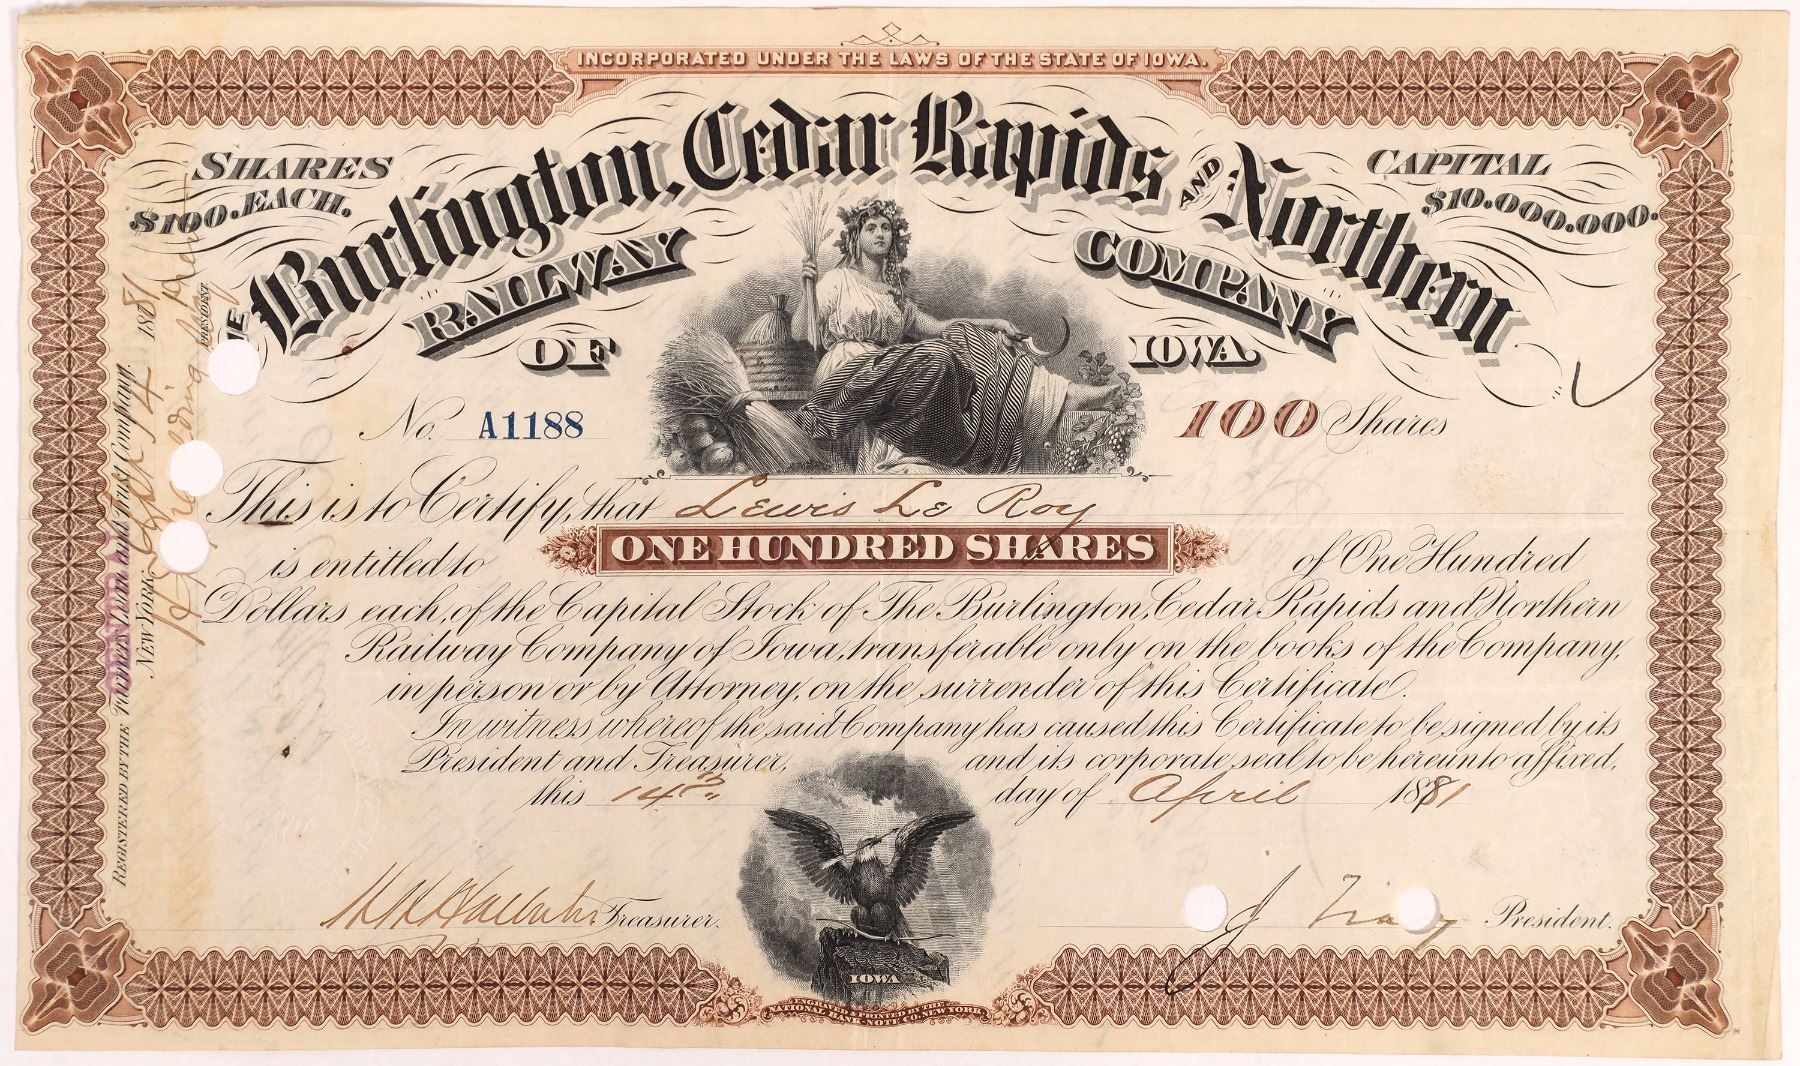 INCORPORATED UNDER THE LAWS OF THE STATE OF IOWA.
SHARES
$100. EACH.
CAPITAL
$10.000.000.
THE Burlington, Cedar Rapids AND Northern
RAILWAY COMPANY
OF IOWA.
No. A1188
100 Shares
This is to Certify, that Lewis Le Roy
is entitled to ONE HUNDRED SHARES of One Hundred
Dollars each, of the Capital Stock of The Burlington, Cedar Rapids and Northern
Railway Company of Iowa, transferable only on the books of the Company,
in person or by Attorney, on the surrender of this Certificate.
In witness whereof the said Company has caused this Certificate to be signed by its
President and Treasurer, and its corporate seal to be hereunto affixed,
this 14th day of April 1881
Treasurer.
J Tracy President.
IOWA
ENGRAVED & PRINTED BY THE
NATIONAL BANK-NOTE CO. NEW YORK
REGISTERED BY THE Farmers Loan and Trust Company.
CENTRAL
NEW YORK, 14 1881
PRESIDENT